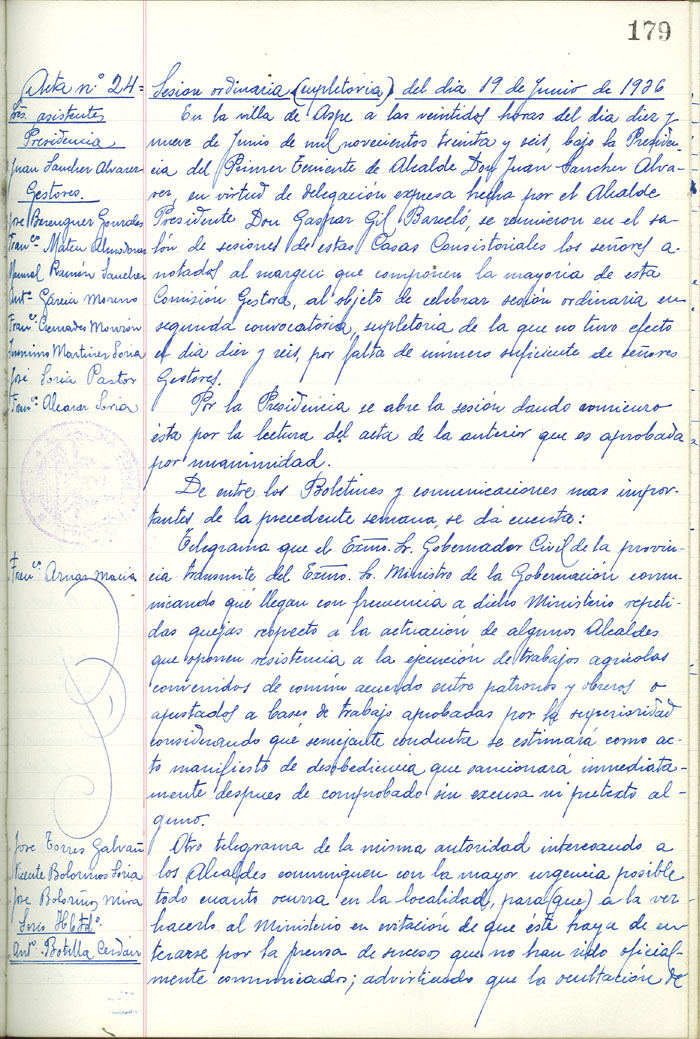 179
Acta nº 24 = Sesion ordinaria (supletoria) del dia 19 de Junio de 1936
Sres. asistentes
Presidencia
Juan Sanchez Alvarez
Gestores.
Jose Berenguer Gonzales
Franco. Mateu Almodovar
Manuel Ramon Sanchez
Anto. Garcia Moreno
Franco. Cremades Monzón
Martinez Soria
José Soria Pastor
Franco. Alcaraz Soria
En la villa de Aspe a las veintidos horas del dia diez y
nueve de Junio de mil novecientos treinta y seis, bajo la Presiden-
cia del Primer Teniente de Alcalde Don Juan Sanchez Alva-
rez, en virtud de delegación expresa hecha por el Alcalde
Presidente Don Gaspar Gil Barceló, se reunieron en el sa-
lón de sesiones de estas Casas Consistoriales los señores a-
notados al margen que componen la mayoria de esta
Comisión Gestora, al objeto de celebrar sesión ordinaria en
segunda convocatoria, supletoria de la que no tuvo efecto
el dia diez y seis, por falta de número suficiente de señores
Gestores.
Por la Presidencia se abre la sesión dando comienzo
ésta por la lectura del acta de la anterior que es aprobada
por unanimidad.
De entre los Boletines y comunicaciones mas impor-
tantes de la precedente semana, se da cuenta:
Franco. Arnar Macia
Telegrama que el Exmo. Sr. Gobernador Civil de la provin-
cia transmite del Exmo. Sr. Ministro de la Gobernación comu-
nicando que llegan con frecuencia a dicho Ministerio repeti-
das quejas respecto a la actuación de algunos Alcaldes
que oponen resistencia a la ejecución de trabajos agricolas
convenidos de común acuerdo entre patronos y obreros o
ajustados a bases de trabajo aprobadas por la superioridad
considerando que semejante conducta se estimará como ac-
to manifiesto de desobediencia que sancionará inmediata-
mente despues de comprobado sin excusa ni pretexto al-
guno.
Jose Torres Galvañ
Vicente Bolorinos Soria
Jose Boloriños Mira
Anto. Botella Cerdán
Otro telegrama de la misma autoridad interesando a
los Alcaldes comuniquen con la mayor urgencia posible
todo cuanto ocurra en la localidad, para (que) a la vez
hacerlo al Ministerio en evitación de que éste haya de en-
terarse por la prensa de sucesos que no han sido oficial-
mente comunicados; advirtiendo que la ocultación de